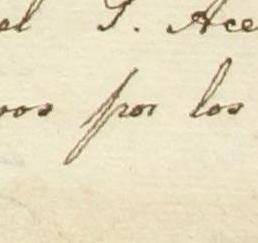 el S. Ace
vos por los